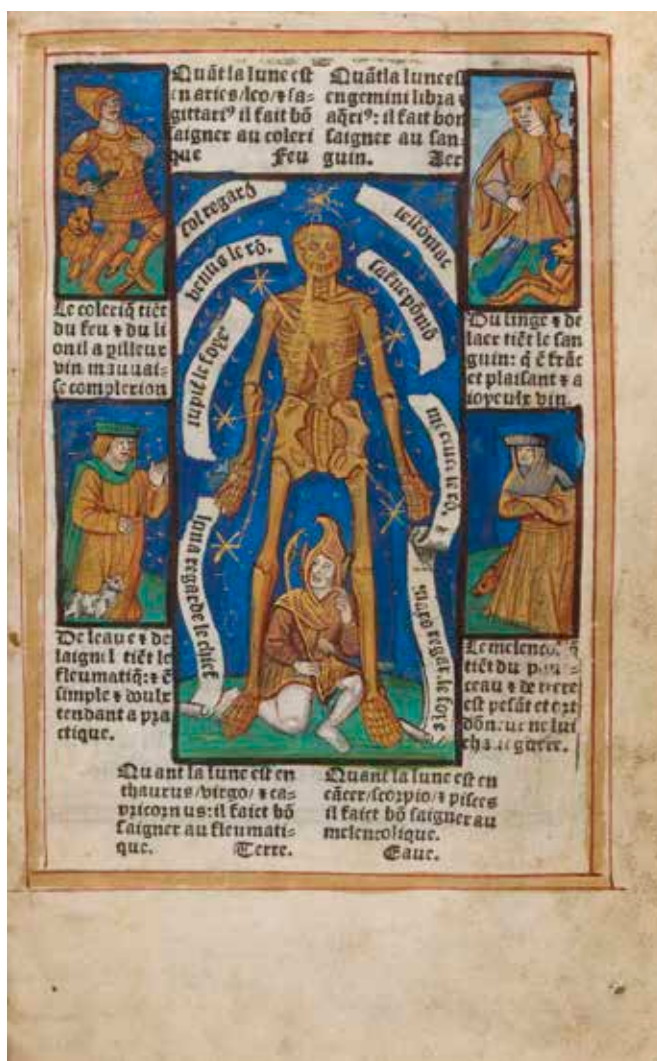 Quāt la lune est
en aries/leo/⁊ sa=
gittariꝰ il fait bō
saigner au coleri
que Feu
Quāt la lune est
en gemini libra ⁊
aq̄riꝰ: il fait bon
saigner au san=
guin. Aer
sol regarō
lestomac
venus le rō.
iupit le foye
luna regarde le chief
mars regarde
Le coleriq̄ tiēt
du feu ⁊ du li
on il a pilleux
vin mauuai=
se complexion
Du singe ⁊ de
laer tiēt le san
guin: q̄ ē frāc
et plaisant ⁊ a
ioyeulx vin.
De leaue ⁊ de
laignel tiēt le
fleumatiq̄: ⁊ ē
simple ⁊ doulx
tendant a pra
ctique.
Le
tiēt du
ceau ⁊ de terre
est pesāt et ort
ne lui
guere.
Quant la lune est en
thaurus/virgo/⁊ ca=
pricornus: il faict bō
saigner au fleumati=
que. Terre.
Quant la lune est en
cācer/scorpio/⁊ pisces
il faict bō saigner au
melencolique.
Eaue.